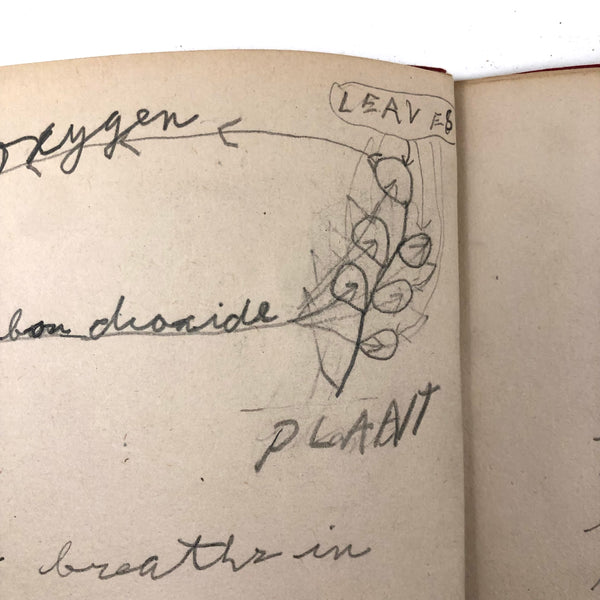 LEAVES
oxygen
bon dioxide
PLANT
breaths in